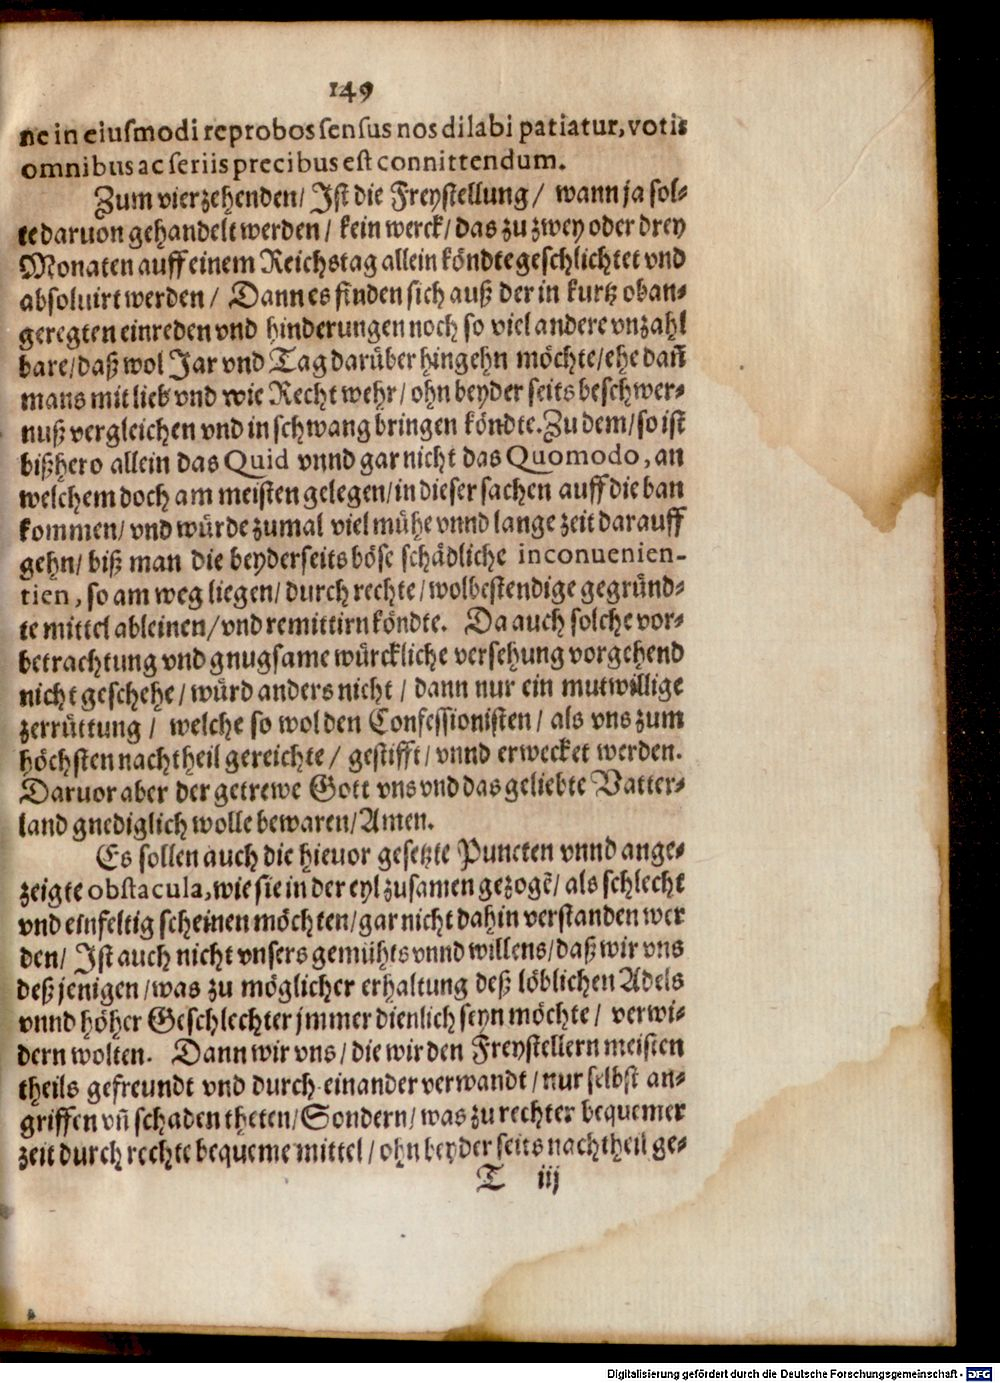 149
ne in eiusmodi reprobos sensus nos dilabi patiatur, votis
omnibus ac seriis precibus est connittendum.
Zum vierzehenden/ Ist die Freystellung/ wann ja sol⸗
te daruon gehandelt werden/ kein werck/ das zu zwey oder drey
Monaten auff einem Reichstag allein köndte geschlichtet vnd
absoluirt werden/ Dann es finden sich auß der in kurtz oban⸗
geregten einreden vnd hinderungen noch so viel andere vnzahl
bare/ daß wol Jar vnd Tag darüber hingehn möchte/ ehe dañ
mans mit lieb vnd wie Recht wehr/ ohn beyder seits beschwer⸗
nuß vergleichen vnd in schwang bringen köndte. Zu dem/ so ist
bißhero allein das Quid vnnd gar nicht das Quomodo, an
welchem doch am meisten gelegen/ in dieser sachen auff die ban
kommen/ vnd würde zumal viel mühe vnnd lange zeit darauff
gehn/ biß man die beyderseits böse schädliche inconuenien-
tien, so am weg liegen/ durch rechte/ wolbestendige gegründ⸗
te mittel ableinen/ vnd remittirn köndte. Da auch solche vor⸗
betrachtung vnd gnugsame würckliche versehung vorgehend
nicht geschehe/ würd anders nicht/ dann nur ein mutwillige
zerrüttung/ welche so wol den Confessionisten/ als vns zum
höchsten nachtheil gereichte/ gestifft/ vnnd erwecket werden.
Daruor aber der getrewe Gott vns vnd das geliebte Vatter⸗
land gnediglich wolle bewaren/ Amen.
Es sollen auch die hieuor gesetzte Puncten vnnd ange⸗
zeigte obstacula, wie sie in der eyl zusamen gezogẽ/ als schlecht
vnd einfeltig scheinen möchten/ gar nicht dahin verstanden wer
den/ Ist auch nicht vnsers gemühts vnnd willens/ daß wir vns
deß jenigen/ was zu möglicher erhaltung deß löblichen Adels
vnnd höher Geschlechter jmmer dienlich seyn möchte/ verwi⸗
dern wolten. Dann wir vns/ die wir den Freystellern meisten
theils gefreundt vnd durch einander verwandt/ nur selbst an⸗
griffen vñ schaden theten/ Sondern/ was zu rechter bequemer
zeit durch rechte bequeme mittel/ ohn beyder seits nachtheil ge⸗
T iij
Digitalisierung gefördert durch die Deutsche Forschungsgemeinschaft - DFG